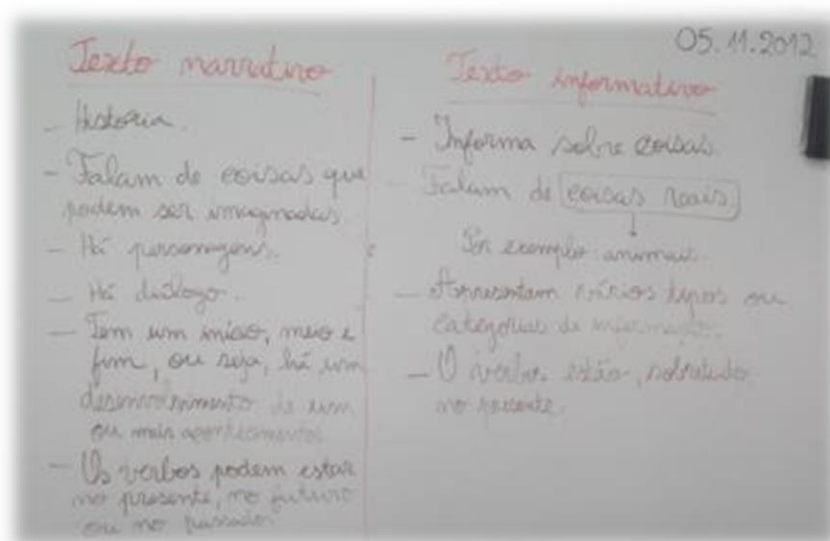 05.11.2012
Texto narrativo
- História.
- Falam de coisas que
podem ser imaginadas
- Há personagens.
- Há diálogo.
- Tem um início, meio e
fim, ou seja, há um
desenvolvimento de um
ou mais acontecimentos
- Os verbos podem estar
no presente, no futuro
ou no passado
Texto informativo
- Informa sobre coisas.
- Falam de coisas reais
Por exemplo: animais.
- Apresentam vários tipos ou
categorias de informação.
- O verbo estão, sobretudo
no presente.